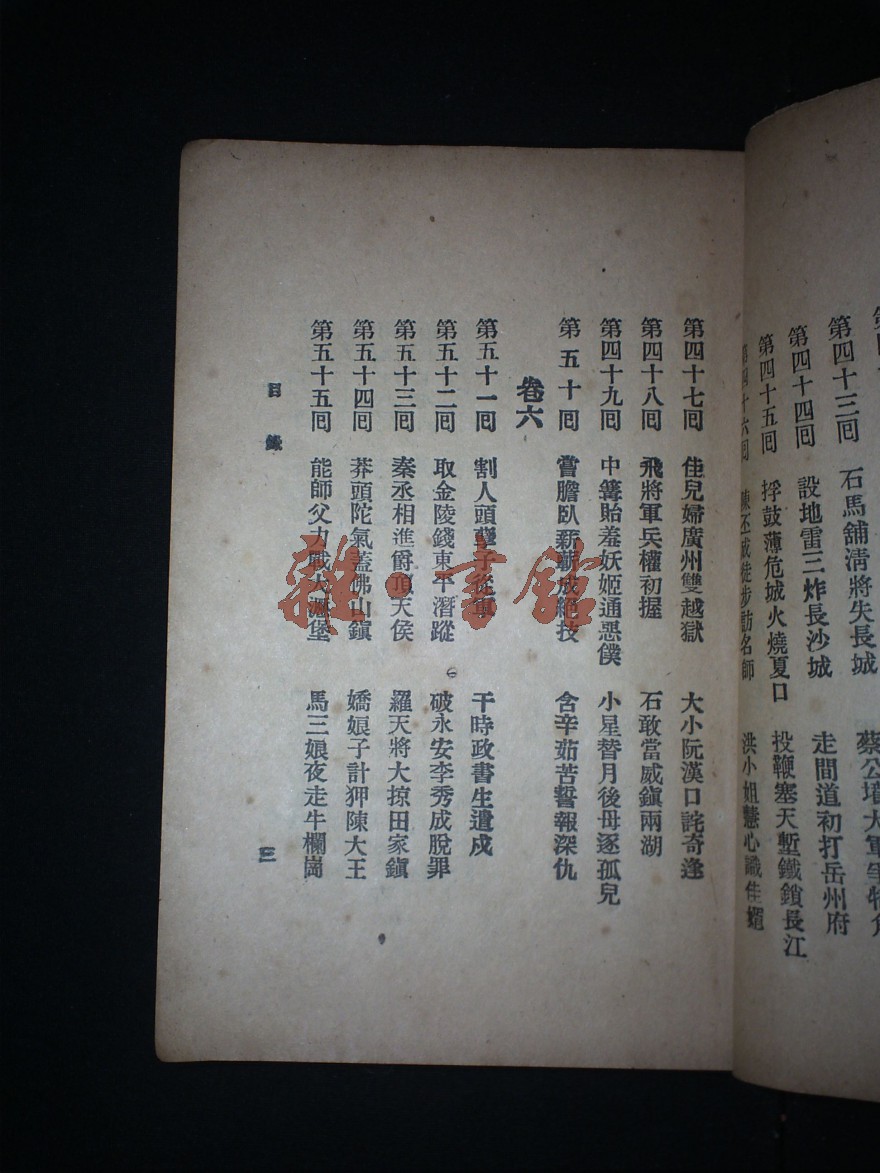 第四十三囘 石馬舖清將失長城 蔡公墳大軍
第四十四囘 設地雷三炸長沙城 走間道初打岳州府
第四十五囘 捊鼓薄危城火燒夏口 投鞭塞天塹鐵鎖長江
第四十六囘 陳丕成徒步訪名師 洪小姐慧心識佳壻
第四十七囘 佳兒婦廣州雙越獄 大小阮漢口詫奇逢
第四十八囘 飛將軍兵權初握 石敢當威鎮兩湖
第四十九囘 中篝貽羞妖姬通惡僕 小星替月後母逐孤兒
第五十囘 嘗膽臥薪 成絕技 含辛茹苦誓報深仇
卷六
第五十一囘 割人頭孽子從軍 干時政書生遣戍
第五十二囘 取金陵錢東平潛蹤 破永安李秀成脫罪
第五十三囘 秦丞相進爵頂天侯 羅天將大掠田家鎮
第五十四囘 莽頭陀氣蓋佛山鎮 嬌娘子計狎陳大王
第五十五囘 能師父力戰大瀝堡 馬三娘夜走牛欄崗
目錄
三
雜·書館